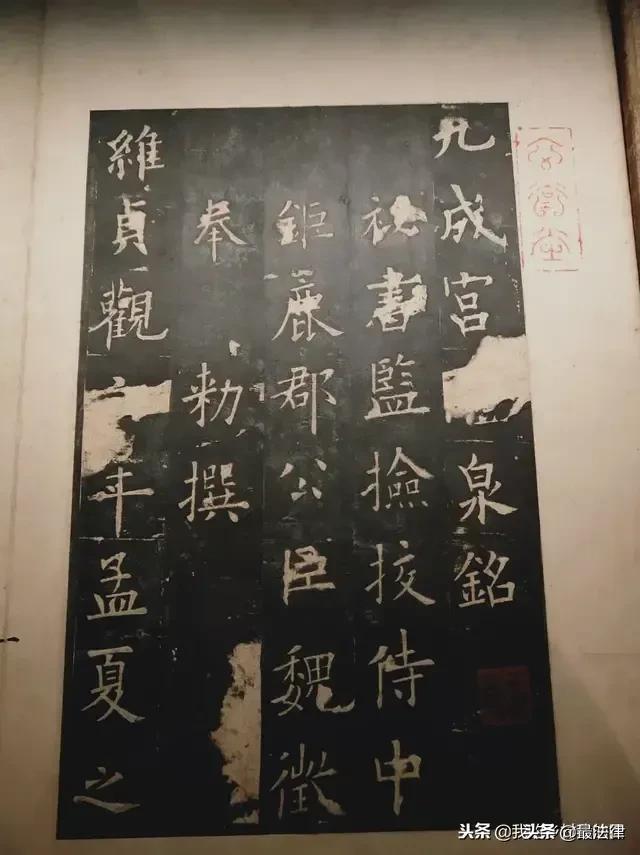 九成宮泉銘
秘書監撿挍侍中
鉅鹿郡公臣魏徵
奉勑撰
維貞觀六年孟夏之
头条 @我
头条 @最法律